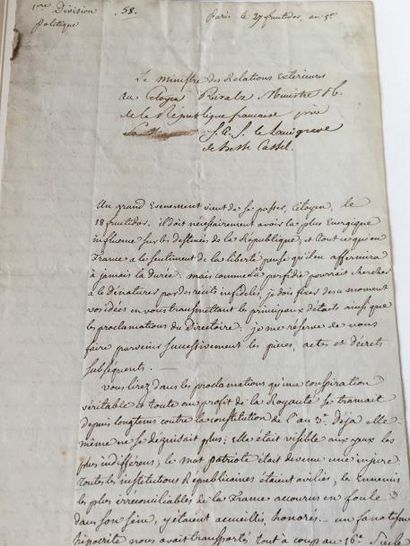 1ere Division
Politique
58.
Paris le 27 fructidor, an 5e
Le Ministre des Relations Extérieures
au Citoyen Rivals Ministre Pl.
de la République française près
S. A. S. le Landgrave
de Hesse Cassel.
Un grand Evenement vient de se passer, Citoyen, le
18 fructidor. il doit nécessairement avoir la plus Energique
influence sur les destinées de la République, et tout ce qui en
France a le sentiment de la liberté pense qu'il en affermira
à jamais la durée; mais comme la perfidie pourrait chercher
à le dénaturer par des récits infideles, je dois fixer dès ce moment
vos idées en vous transmettant les principaux détails ainsi que
les proclamations du Directoire; je me réserve de vous
faire parvenir successivement les pièces, actes et décrets
subséquents.
Vous lirez dans les proclamations qu'une conspiration
véritable et toute au profit de la Royauté se tramait
depuis longtems contre la constitution de l'an 3. Déja elle
même ne se déguisait plus; elle était visible aux yeux les
plus indifférens; le mot patriote était devenu une injure
toutes les institutions Républicaines étaient avilies, les Ennemis
les plus irréconciliables de la France accourus en foule
dans son sein, y étaient accueillis, honorés... un fanatisme
hipocrite nous avait transportés tout à coup au 16e Siecle